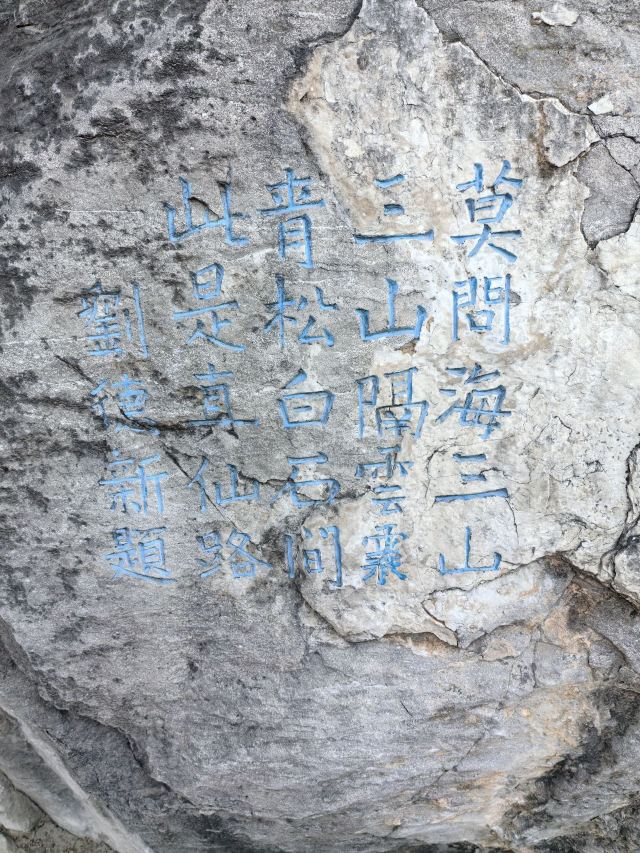 莫問海三山
三山隔雲
青松白石間
此是真仙路
劉德新題